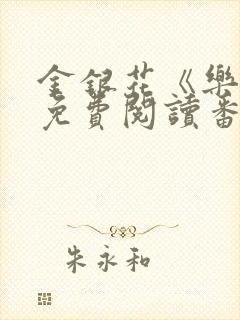 金銀花《樂
免費閱讀番
朱永和